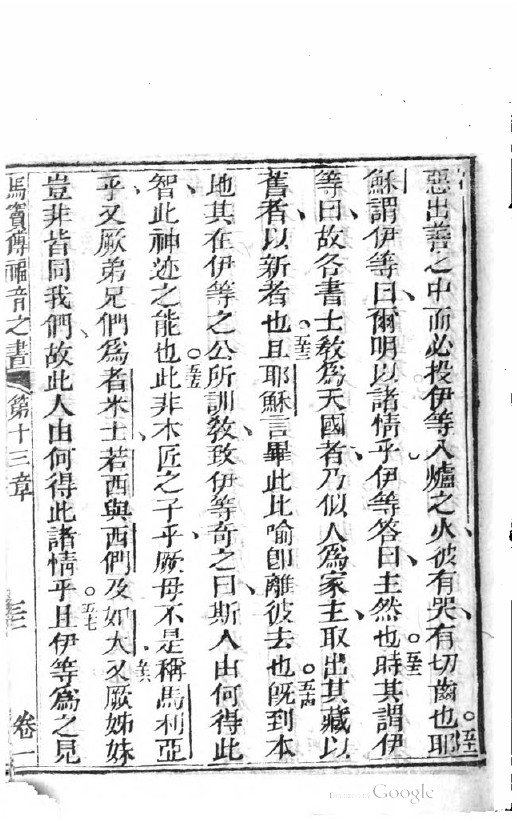 惡出善之中而必投伊等入爐之火彼有哭有切齒也耶
穌謂伊等曰爾明以諸情乎伊等答曰主然也時其謂伊
等曰故各書士敎為天國者乃似人為家主取出其藏以
舊者以新者也○五十三且耶穌言畢此比喻卽離彼去也○五十四旣到本
地其在伊等之公所訓敎致伊等奇之曰斯人由何得此
智此神迹之能也○五十五此非木匠之子乎厥母不是稱馬利亞
乎又厥弟兄們為者米士若西與西們及如大○五十六又厥姊妹
豈非皆同我們故此人由何得此諸情乎○五十七且伊等為之見
馬寶傳福音之書 第十三章 卷一
Google